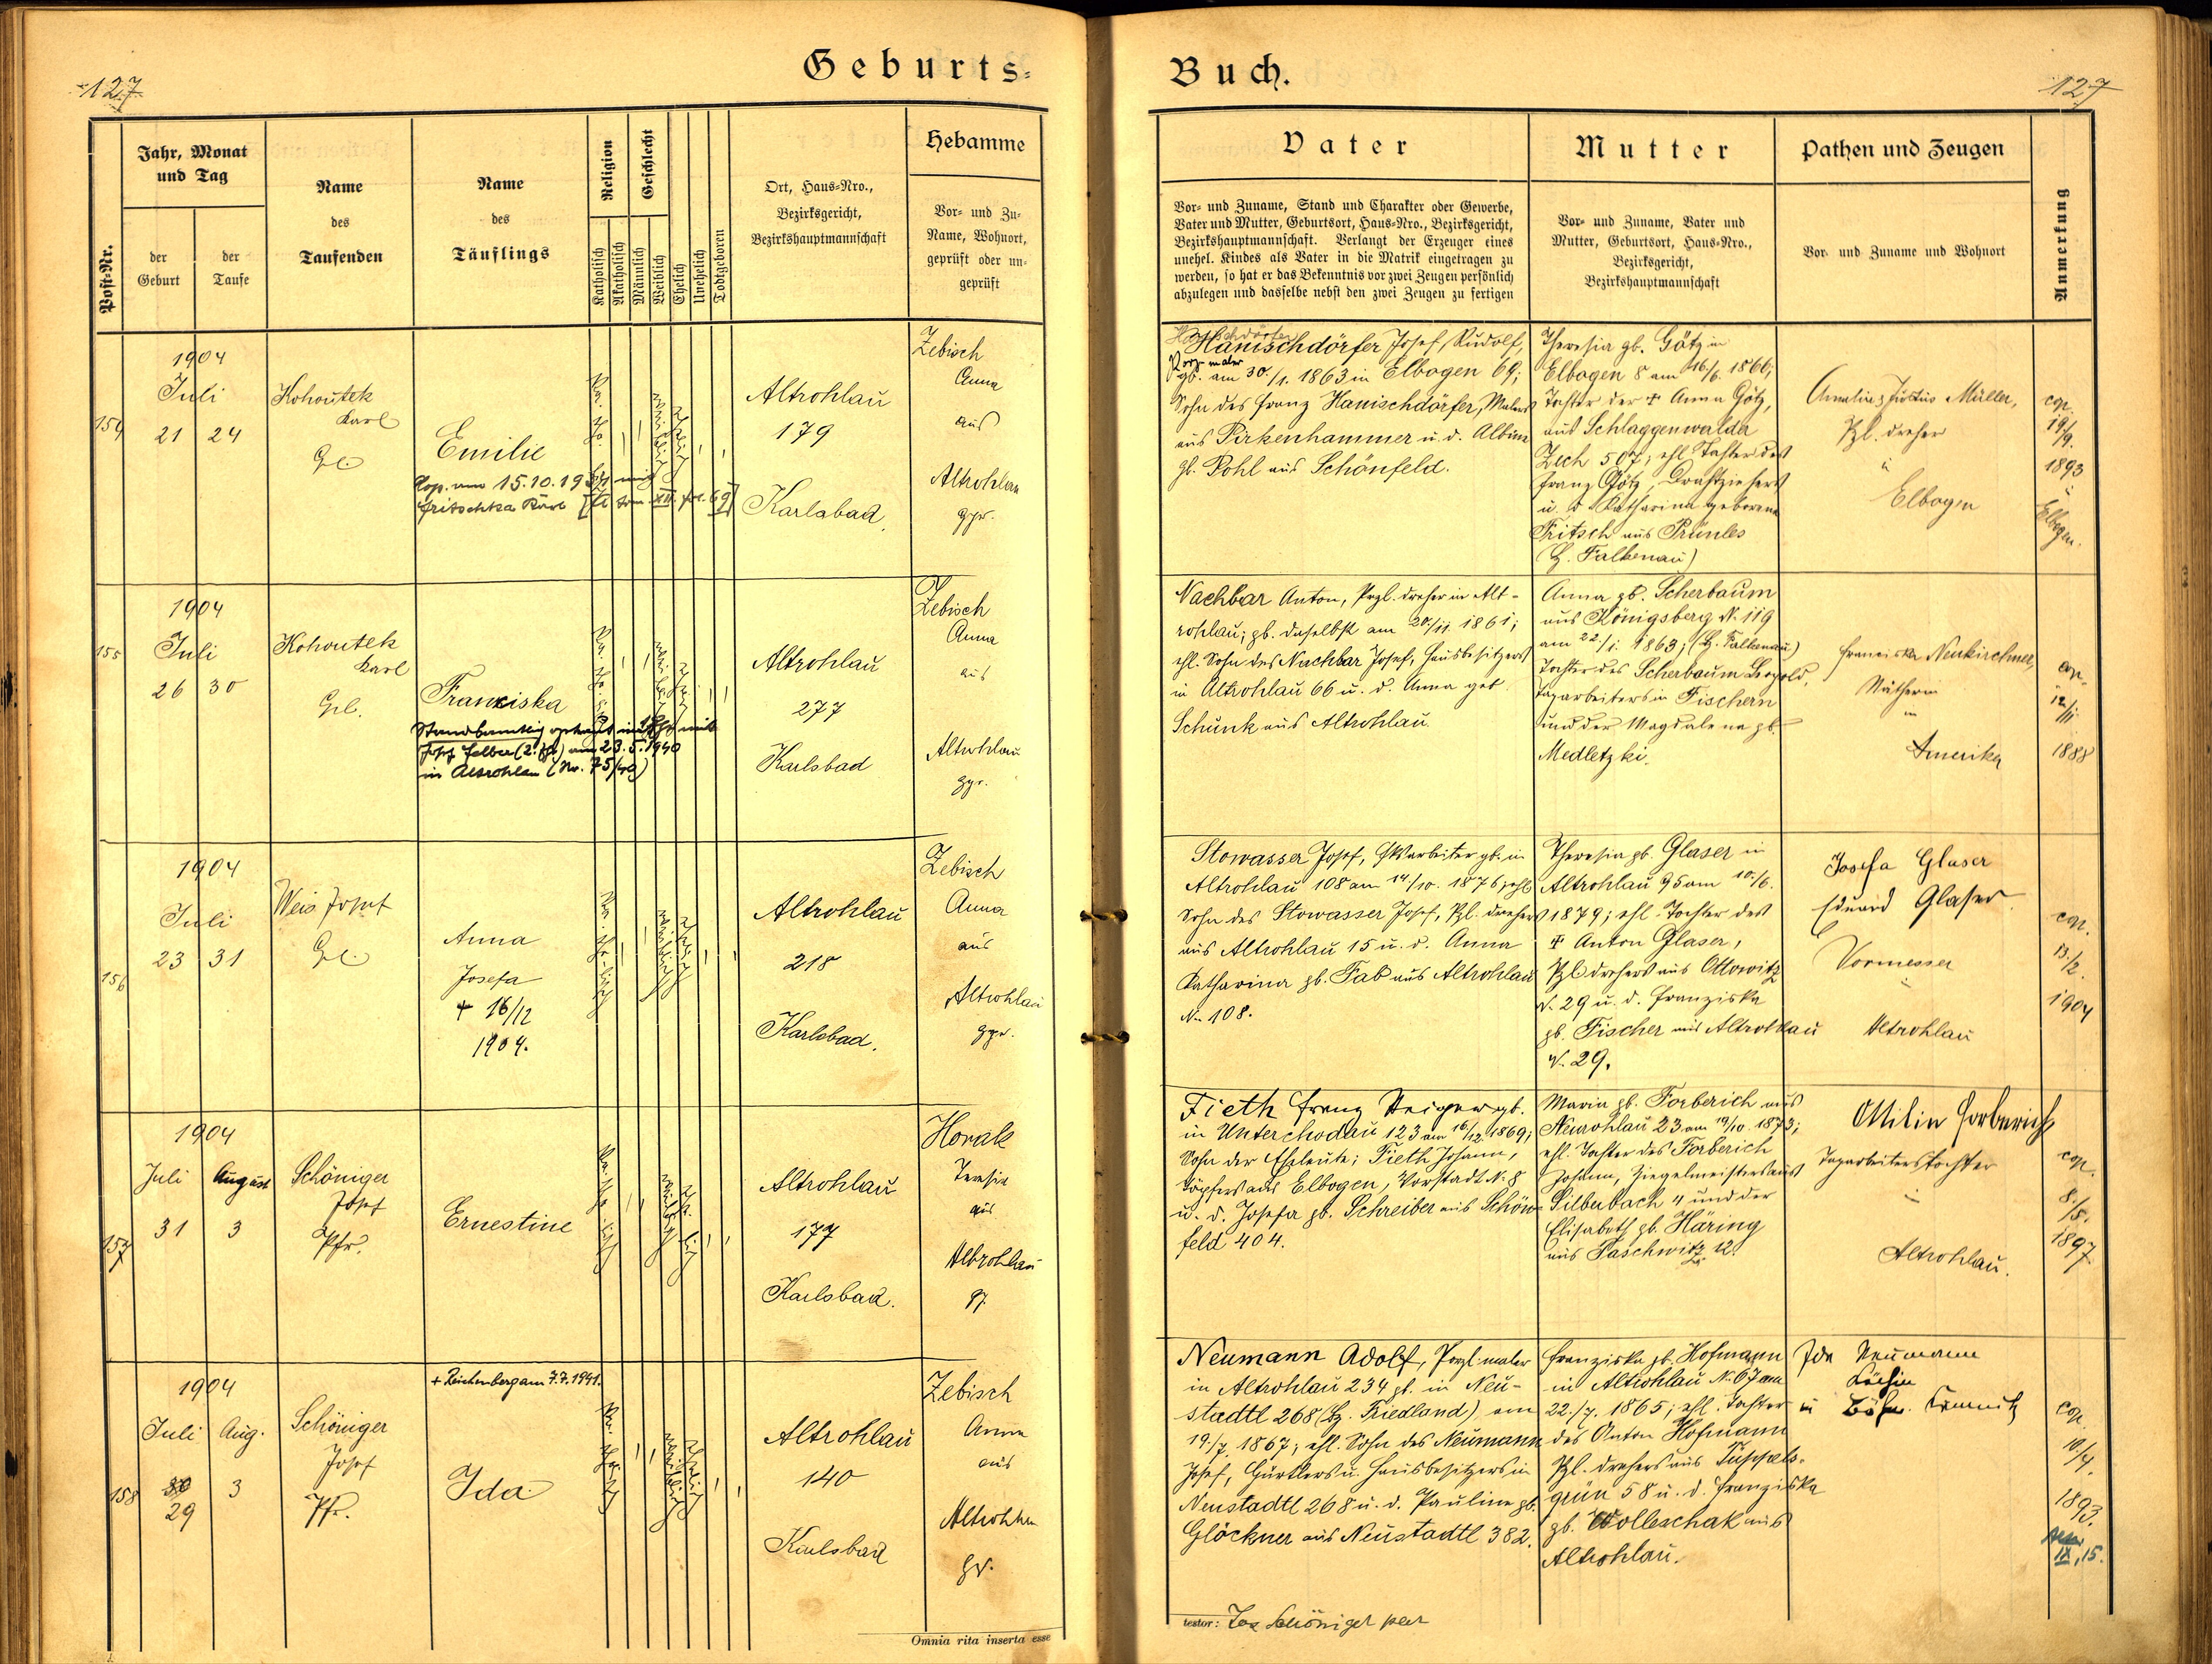 127
Geburts-
Post-Nr.
Jahr, Monat
und Tag
der
Geburt
der
Taufe
Name
des
Taufenden
Name
des
Täuflings
Religion
Katholisch
Akatholisch
Geschlecht
Männlich
Weiblich
Ehelich
Unehelich
Todtgeboren
Ort, Haus-Nro.,
Bezirksgericht,
Bezirkshauptmannschaft
Hebamme
Vor- und Zu-
Name, Wohnort,
geprüft oder un-
geprüft
154
1904
Juli
21 24
Kohoutek
Karl
Emilie
Kop. am 15.10.19
Fritschka Karl
Altrohlau
179
Karlsbad
Zebisch
Anna
aus
Altrohlau
gpr.
155
1904
Juli
26 30
Kohoutek
Karl
Franziska
Josef Felber (2. Ehe) am 23.5.1940
in Altrohlau (Nr. 75/40)
Altrohlau
277
Karlsbad
Zebisch
Anna
aus
Altrohlau
gpr.
156
1904
Juli
23 31
Weis Josef
Anna
Josefa
+ 16/12
1904.
Altrohlau
218
Karlsbad.
Zebisch
Anna
aus
Altrohlau
gpr.
157
1904
Juli August
31 3
Schöniger
Josef
Pfr.
Ernestine
Altrohlau
177
Karlsbad.
Horak
Teresia
aus
Altrohlau
158
1904
Juli Aug.
30 3
29
Schöniger
Josef
Pfr.
+ Reichenberg am 7.7.1941.
Ida
Altrohlau
140
Karlsbad
Zebisch
Anna
aus
Altrohlau
Omnia rita inserta esse
Buch.
127
Vater
Vor- und Zuname, Stand und Charakter oder Gewerbe,
Vater und Mutter, Geburtsort, Haus-Nro., Bezirksgericht,
Bezirkshauptmannschaft. Verlangt der Erzeuger eines
unehel. Kindes als Vater in die Matrik eingetragen zu
werden, so hat er das Bekenntnis vor zwei Zeugen persönlich
abzulegen und dasselbe nebst den zwei Zeugen zu fertigen
Mutter
Vor- und Zuname, Vater und
Mutter, Geburtsort, Haus-Nro.,
Bezirksgericht,
Bezirkshauptmannschaft
Pathen und Zeugen
Vor- und Zuname und Wohnort
Anmerkung
Hanischdörfer Josef, Rudolf,
gb. am 30./1. 1863 in Elbogen 69;
Sohn des Franz Hanischdörfer, Malers
aus Pirkenhammer u. d. Albina
gb. Pohl aus Schönfeld.
Theresia gb. Götz in
Elbogen 8 am 16/6. 1866,
Tochter der + Anna Götz,
aus Schlaggenwalda
Zech 507; ehl. Tochter des
Franz Götz, Drahtziehers
u. d. Katharina geborene
Fritsch aus Prünles
(Bz. Falkenau)
Müller,
Pzl. dreher
Elbogen
cop.
19/9.
1893
Elbogen.
Nachbar Anton, Przl. dreher in Alt-
rohlau; gb. daselbst am 20./11. 1861;
ehl. Sohn des Nachbar Josef, Hausbesitzers
in Altrohlau 66 u. d. Anna geb.
Schunk aus Altrohlau
Anna gb. Scherbaum
aus Königsberg N. 119
am 22./1. 1863; (Bz. Falkenau)
Tochter des Scherbaum Leopold,
Tagarbeiters in Fischern
und der Magdalena gb.
Medletzki.
Franciska Neukirchner,
Nätherin
in
Amerika
cop.
12/11.
1888
Stowasser Josef, gb. in
Altrohlau 108 am 14./10. 1876; ehl.
Sohn des Stowasser Josef, Pzl. drehers
aus Altrohlau 15 u. d. Anna
Katharina gb. Fab aus Altrohlau
N. 108.
Theresia gb. Glaser in
Altrohlau 95 am 10./6.
1879; ehl. Tochter des
+ Anton Glaser,
Pzl drehers aus Ottowitz
N. 29 u. d. Franziska
gb. Fischer aus Altrohlau
N. 29.
Josefa Glaser
Eduard Glaser
Vormesser
Altrohlau
cop.
13./2.
1904
Fieth Franz Steiger gb.
in Unterchodau 123 am 16/12. 1869;
Sohn der Eheleute; Fieth Johann,
Töpfers aus Elbogen, Vorstadt N. 8
u. d. Josefa gb. Schreiber aus Schön-
feld 404.
Maria gb. Forberich aus
Neurohlau 23 am 19/10. 1873;
ehl. Tochter des Forberich
Johann, Ziegelmeisters aus
Silberbach 4 und der
Elisabeth gb. Häring
aus Paschwitz 12.
Ottilie Forberich
Tagarbeiterstochter
Altrohlau.
cop.
8./5.
1897
Neumann Adolf, Porzl. maler
in Altrohlau 234 gb. in Neu-
stadtl 268 (Bz. Friedland) am
19./7. 1867; ehl. Sohn des Neumann
Josef, Gürtlers u. Hausbesitzers in
Neustadtl 268 u. d. Pauline gb.
Glöckner aus Neustadtl 382.
Franziska gb. Hofmann
in Altrohlau N. 67 am
22./7. 1865; ehl. Tochter
des Anton Hofmann
Pzl. drehers aus Tüppels-
grün 58 u. d. Franziska
gb. Wolleschak aus
Altrohlau.
Ida Neumann
Köchin
in Böhm. Kamnitz
cop.
10/4.
1893.
IX, 15.
testor: Jos Schöniger